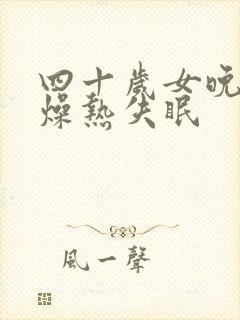 四十歲女晚
燥熱失眠
風一聲